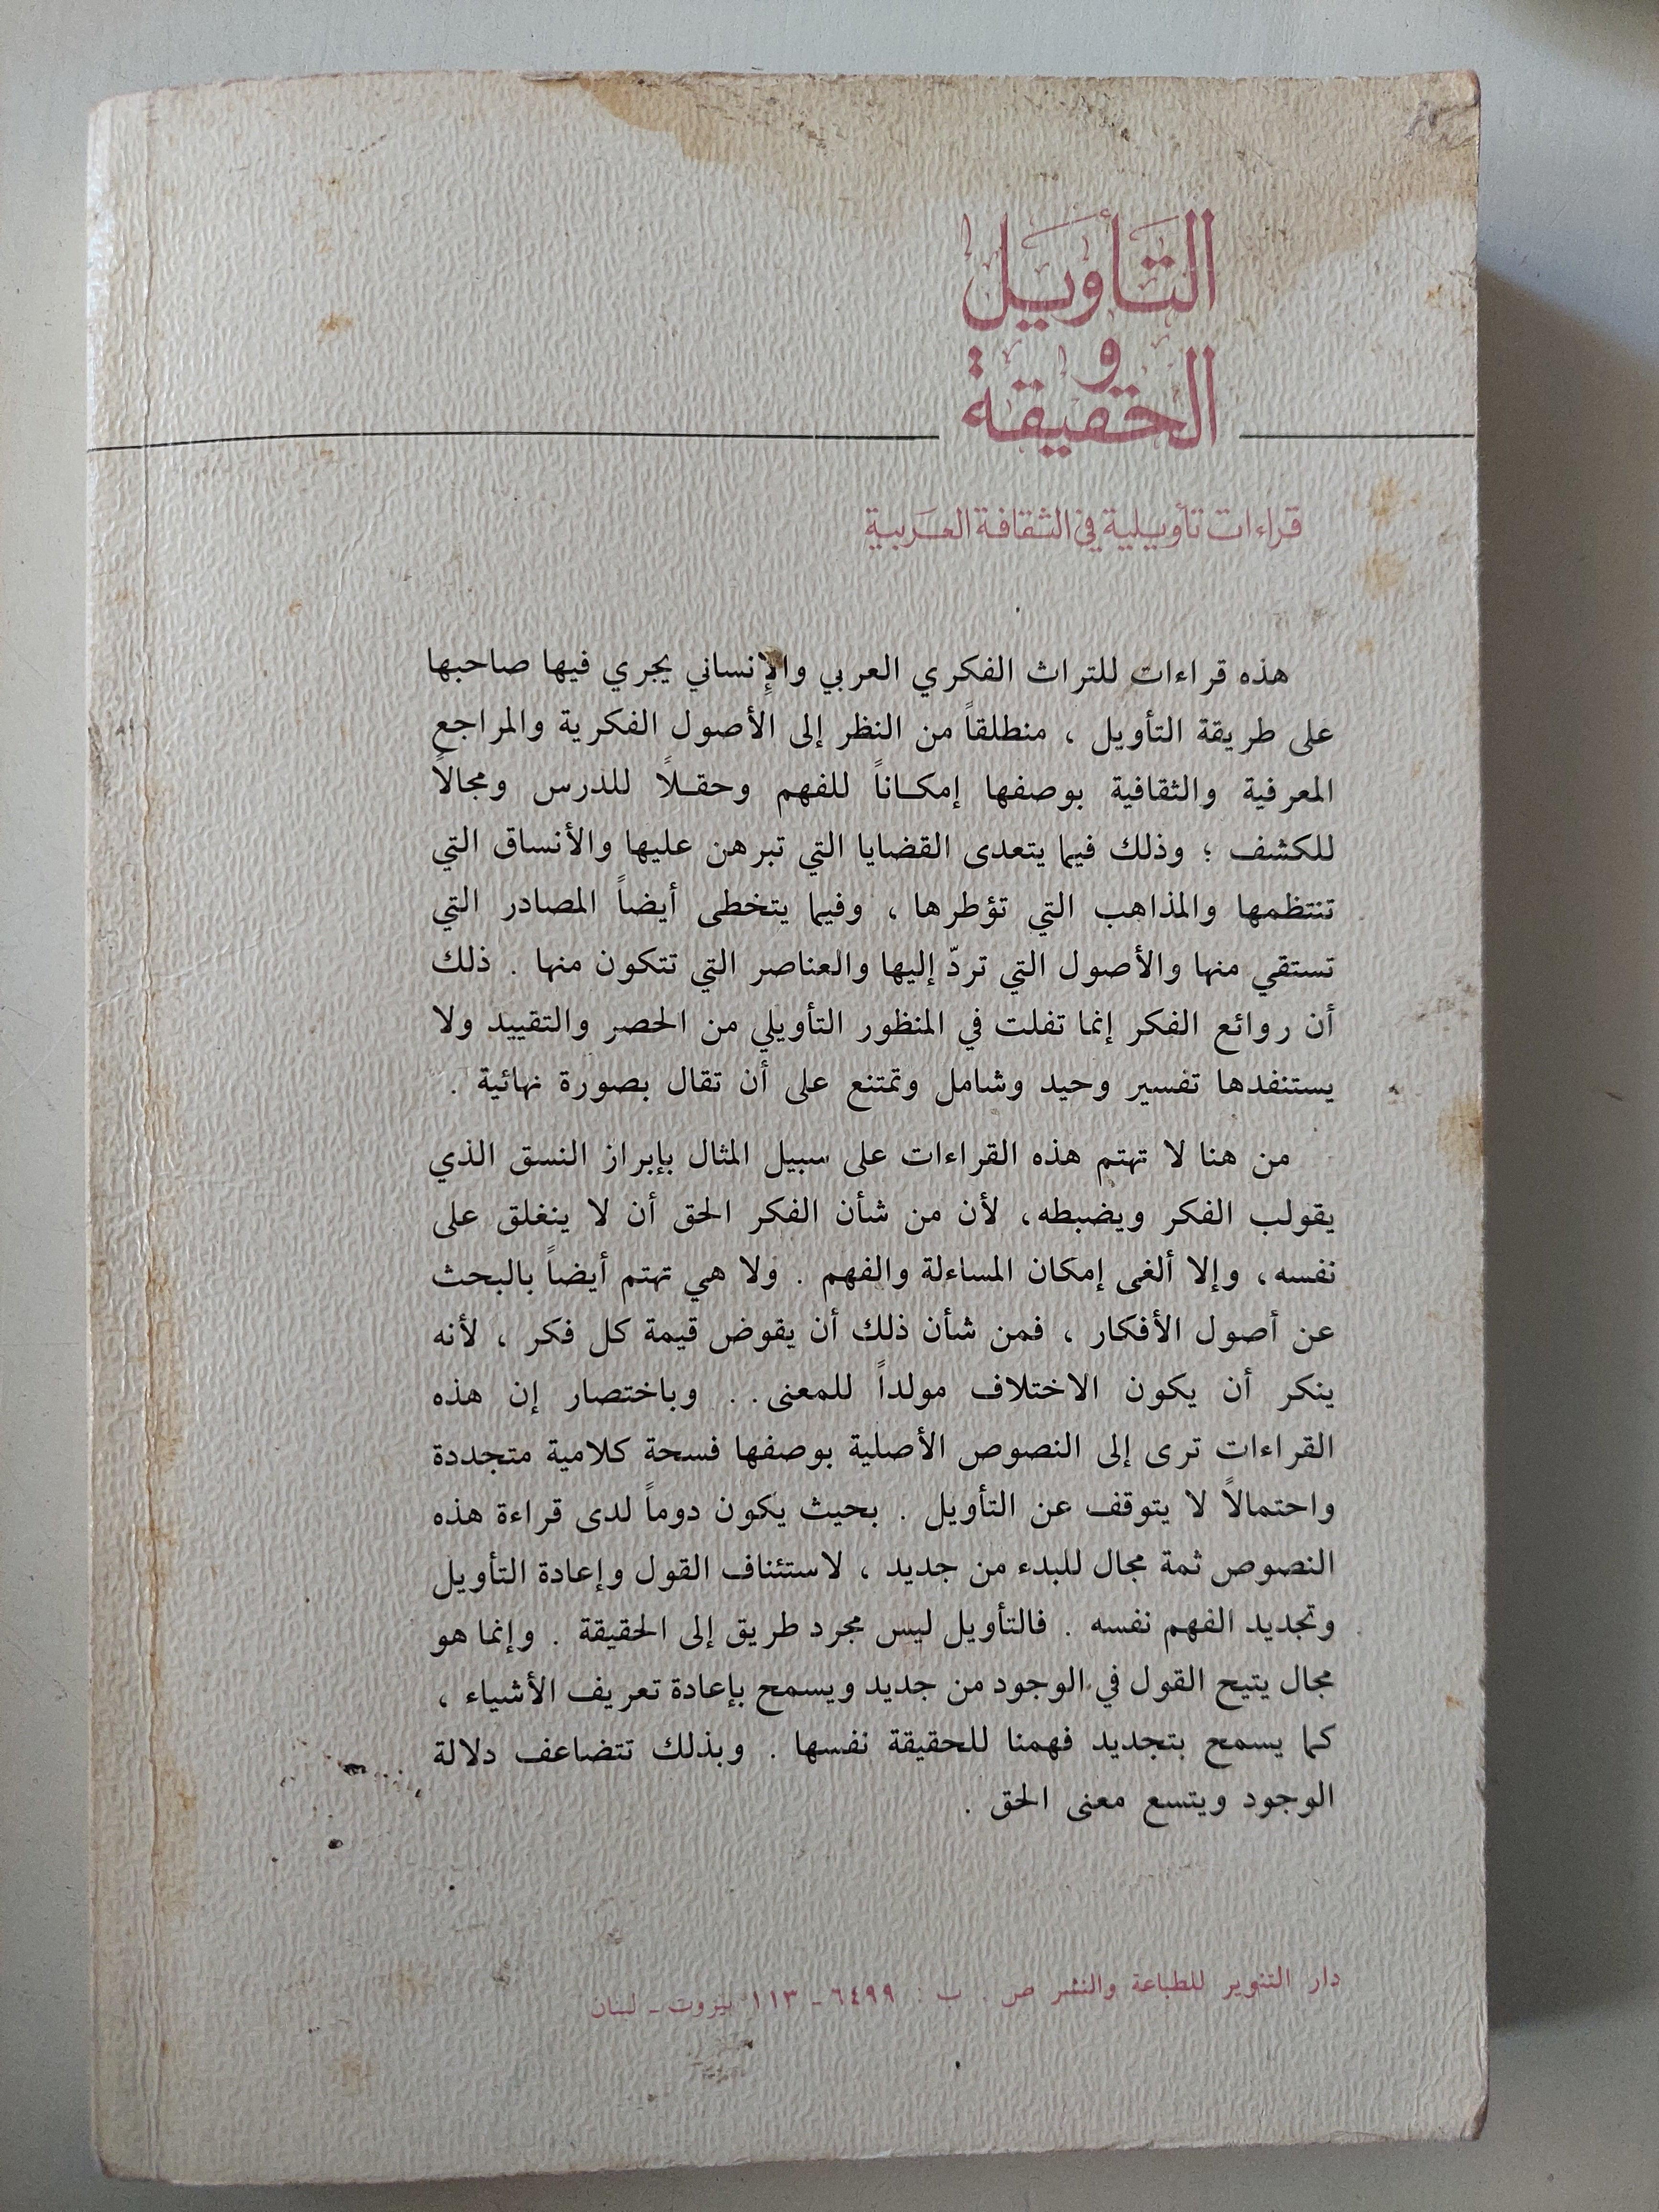 التأويل
و
الحقيقة
قراءات تأويلية في الثقافة العربية
هذه قراءات للتراث الفكري العربي والإنساني يجري فيها صاحبها
على طريقة التأويل ، منطلقاً من النظر إلى الأصول الفكرية والمراجع
المعرفية والثقافية بوصفها إمكاناً للفهم وحقلاً للدرس ومجالاً
للكشف ؛ وذلك فيما يتعدى القضايا التي تبرهن عليها والأنساق التي
تنتظمها والمذاهب التي تؤطرها ، وفيما يتخطى أيضاً المصادر التي
تستقي منها والأصول التي تردّ إليها والعناصر التي تتكون منها . ذلك
أن روائع الفكر إنما تفلت في المنظور التأويلي من الحصر والتقييد ولا
يستنفدها تفسير وحيد وشامل وتمتنع على أن تقال بصورة نهائية .
من هنا لا تهتم هذه القراءات على سبيل المثال بإبراز النسق الذي
يقولب الفكر ويضبطه، لأن من شأن الفكر الحق أن لا ينغلق على
نفسه، وإلا ألغى إمكان المساءلة والفهم . ولا هي تهتم أيضاً بالبحث
عن أصول الأفكار ، فمن شأن ذلك أن يقوض قيمة كل فكر ، لأنه
ينكر أن يكون الاختلاف مولداً للمعنى . . وباختصار إن هذه
القراءات ترى إلى النصوص الأصلية بوصفها فسحة كلامية متجددة
واحتمالاً لا يتوقف عن التأويل . بحيث يكون دوماً لدى قراءة هذه
النصوص ثمة مجال للبدء من جديد ، لاستئناف القول وإعادة التأويل
وتجديد الفهم نفسه . فالتأويل ليس مجرد طريق إلى الحقيقة . وإنما هو
مجال يتيح القول في الوجود من جديد ويسمح بإعادة تعريف الأشياء ،
كما يسمح بتجديد فهمنا للحقيقة نفسها . وبذلك تتضاعف دلالة
الوجود ويتسع معنى الحق .
دار التنوير للطباعة والنشر ص . ب : ٦٤٩٩ - ١١٣ بيروت - لبنان